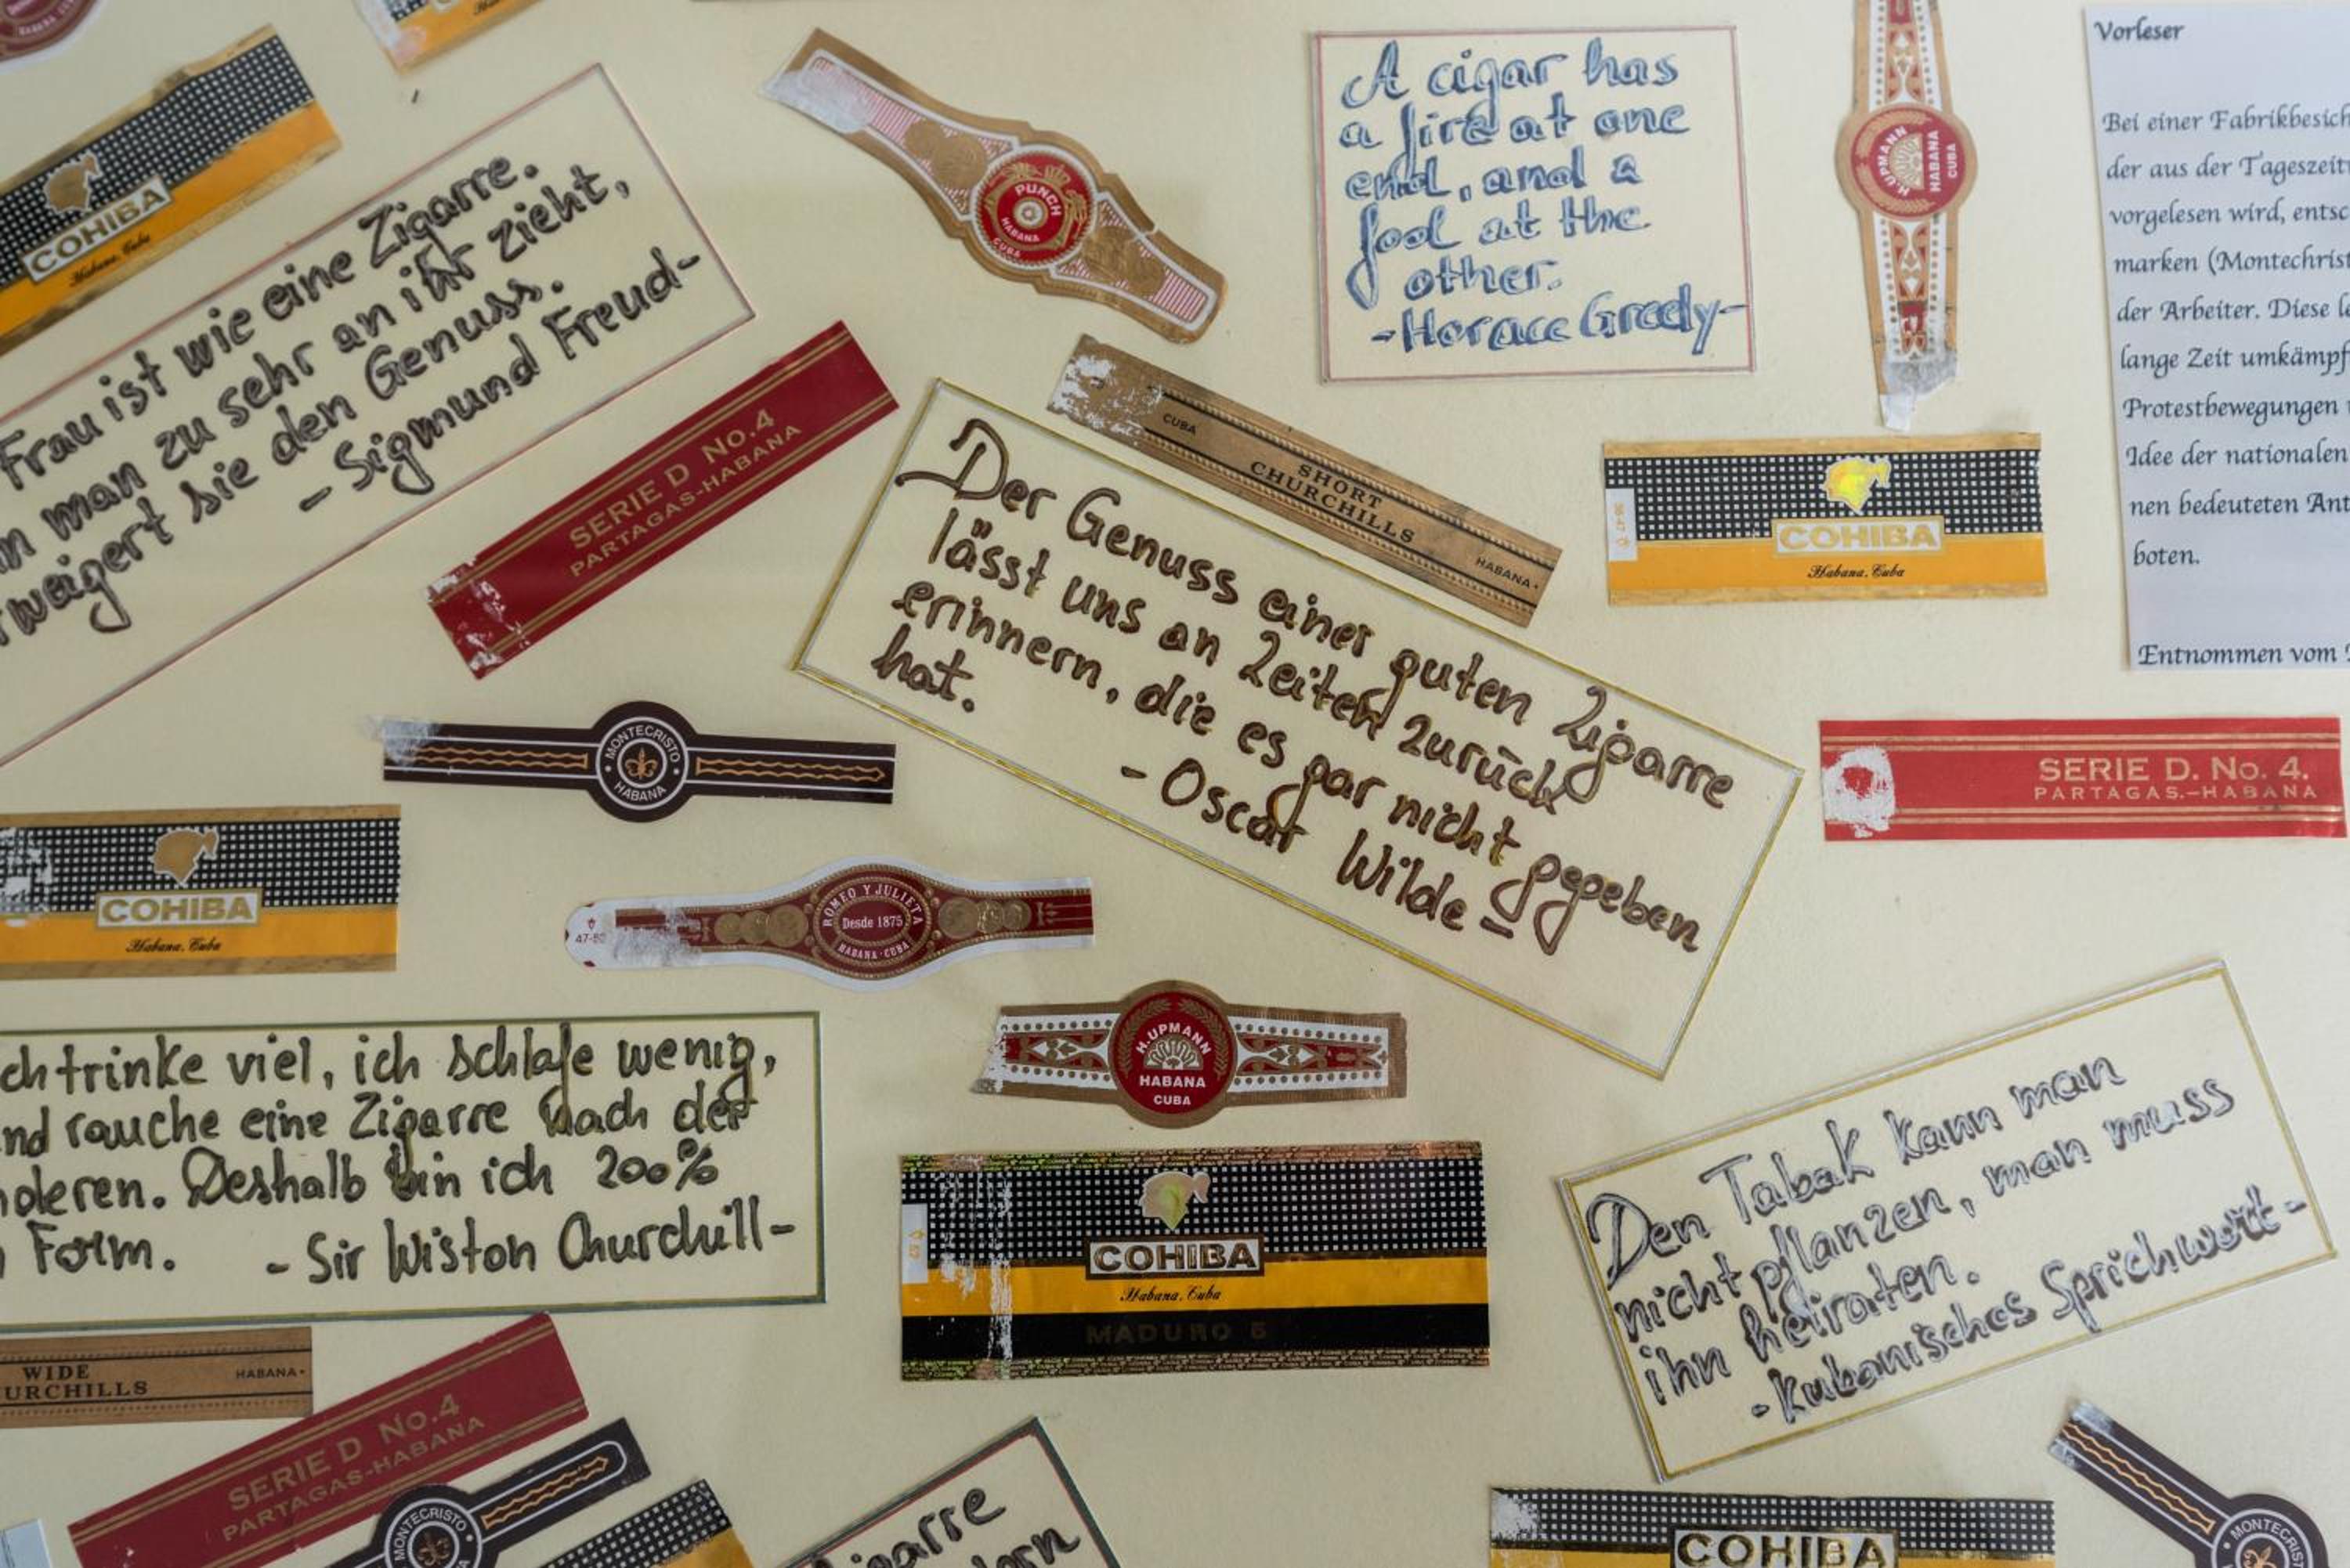 COHIBA
Habana, Cuba
Frau ist wie eine Zigarre.
man zu sehr an ihr zieht,
weigert sie den Genuss.
- Sigmund Freud -
PUNCH
HABANA
CUBA
A cigar has
a fire at one
end, and a
fool at the
other.
- Horace Greely -
H. UPMANN
HABANA
CUBA
Vorleser
Bei einer Fabrikbesich
der aus der Tageszeit
vorgelesen wird, entsc
marken (Montechrist
der Arbeiter. Diese le
lange Zeit umkämpf
Protestbewegungen
Idee der nationalen
nen bedeuteten Ant
boten.
Entnommen vom
SERIE D No.4
PARTAGAS-HABANA
CUBA
SHORT
CHURCHILLS
HABANA
COHIBA
Habana, Cuba
Der Genuss einer guten Zigarre
lässt uns an Zeiten zurück
erinnern, die es gar nicht gegeben
hat.
- Oscar Wilde -
SERIE D. No. 4.
PARTAGAS.-HABANA
MONTECRISTO
HABANA
COHIBA
Habana, Cuba
47-52
ROMEO Y JULIETA
Desde 1875
HABANA-CUBA
H. UPMANN
HABANA
CUBA
ch trinke viel, ich schlafe wenig,
nd rauche eine Zigarre nach der
nderen. Deshalb bin ich 200%
Form.
- Sir Wiston Churchill -
COHIBA
Habana, Cuba
MADURO 5
Den Tabak kann man
nicht pflanzen, man muss
ihn heiraten.
- Kubanisches Sprichwort -
WIDE
URCHILLS
HABANA
SERIE D No.4
PARTAGAS-HABANA
MONTECRISTO
igarre
COHIBA
MONTECRIS